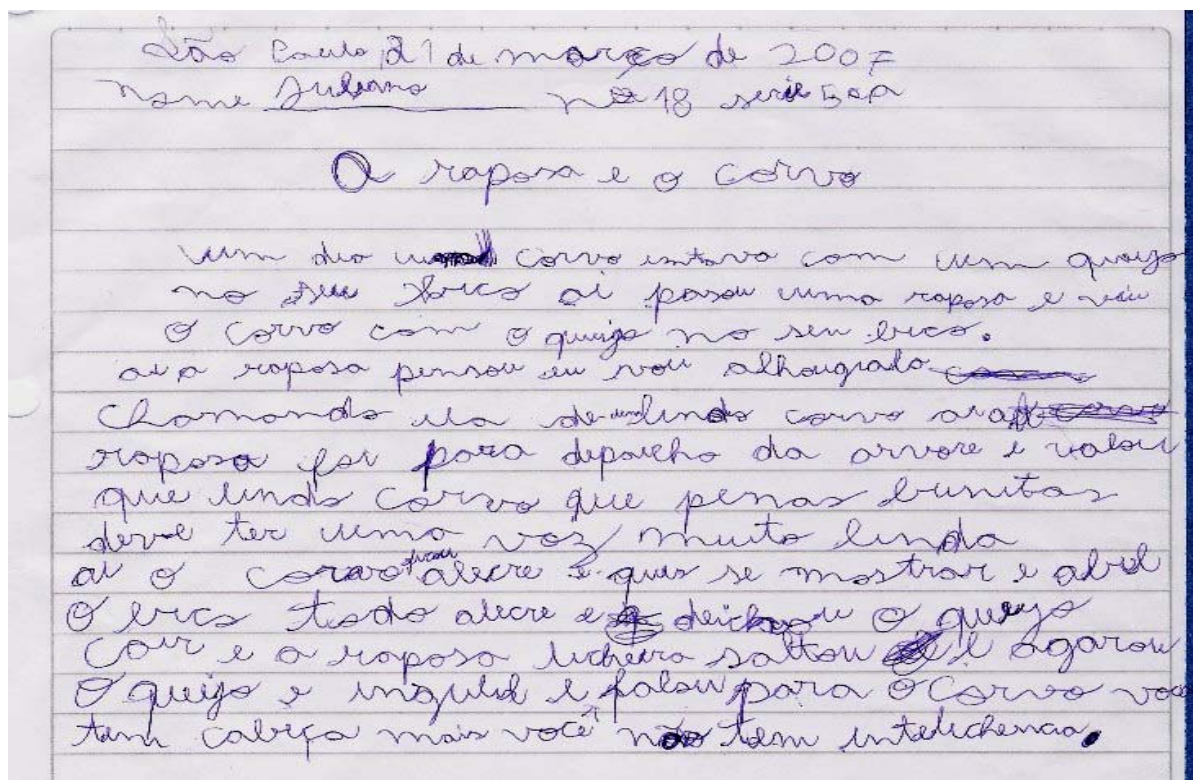 São Paulo, 21 de março de 2007
nome Juliano nº 18 serie 5ªA
A raposa e o corvo
um dia um corvo estava com um queijo
no seu bico ai pasou uma raposa e viu
o corvo com o queijo no seu bico.
ai a raposa pensou eu vou
chamando ela de lindo corvo a
raposa foi para depaicho da arvore e valou
que lindo corvo que penas bunitas
deve ter uma voz muito linda
ai o corvo ficou alecre e quis se mostrar e abril
o bico todo alecre e deichou o queijo
cair e a raposa licheira saltou e agarou
o queijo e ingulil e falou para o corvo voce
tem cabeça mais você não tem intelichencia.